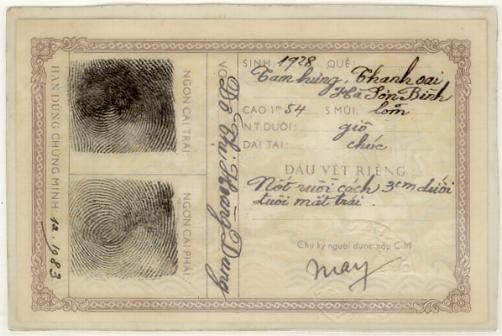 SINH: 1928 QUÊ:
Tam hưng, Thanh oai
Hà Sơn Bình
CAO 1m 54 S.MŨI: lõm
N.T.DƯỚI: giô
DÁI TAI: chúc
DẤU VẾT RIÊNG
Nốt ruồi cách 3cm dưới
đuôi mắt trái.
Chữ ký người được cấp C.M
may
NGÓN CÁI TRÁI:
NGÓN CÁI PHẢI:
HẠN DÙNG CHỨNG MINH 12.1983